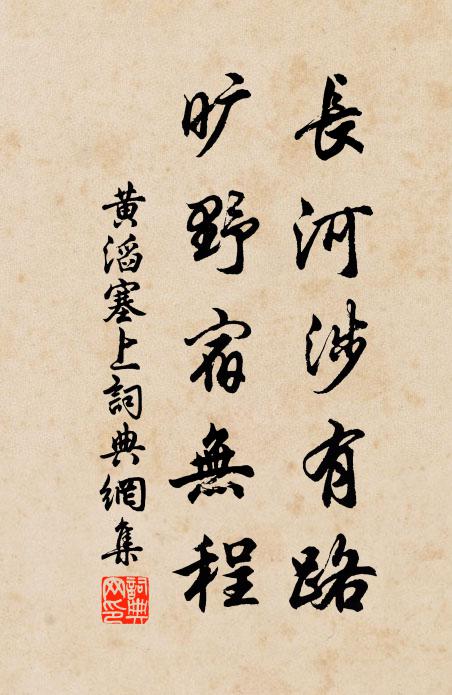 長河涉有路
旷野宿無程
黃滔塞上詞典網集
詞典網印